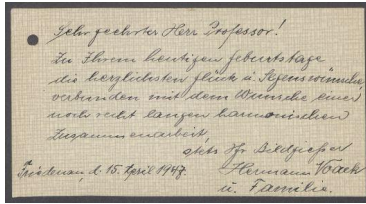 Sehr geehrter Herr Professor!
Zu Ihrem heutigen Geburtstage
die herzlichsten Glück u. Segenswünsche,
verbunden mit dem Wunsche einer
noch recht langen harmonischen
Zusammenarbeit,
stets Ihr Bildgießer
Friedenau, d. 15. April 1947. Hermann Noack
u. Familie.